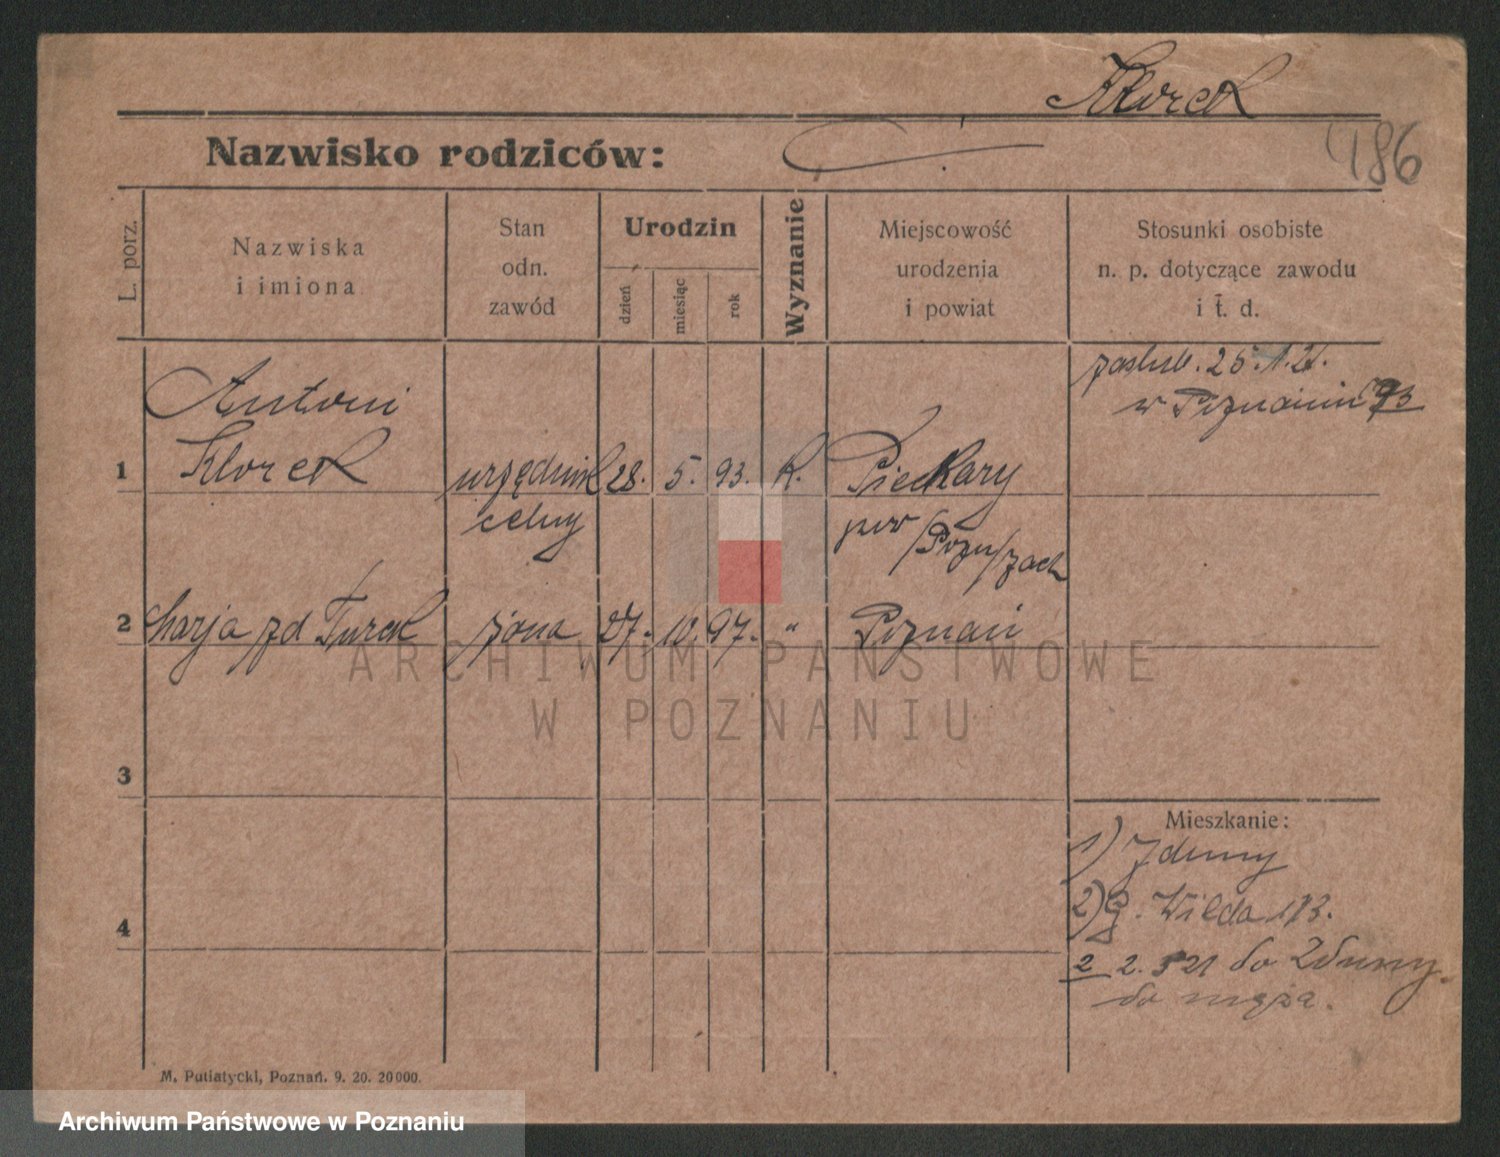 Klorek
Nazwisko rodziców:
486
L. porz.
Nazwiska
i imiona
Stan
odn.
zawód
Urodzin
dzień
miesiąc
rok
Wyznanie
Miejscowość
urodzenia
i powiat
Stosunki osobiste
n. p. dotyczące zawodu
i t. d.
zaślub. 25.1.21.
w Poznaniu
Antoni
1 Klorek urzędnik 28. 5. 93. k. Piekary
celny pow Pozn zach
2 Marja zd Turek żona 27. 10. 97. " Poznań
ARCHIWUM PAŃSTWOWE
W POZNANIU
3
Mieszkanie:
1) Zduny
2) G. Wilda 113.
4
2 2. 3 21 do Zduny
do męża.
M. Putiatycki, Poznań. 9. 20. 20000.
Archiwum Państwowe w Poznaniu